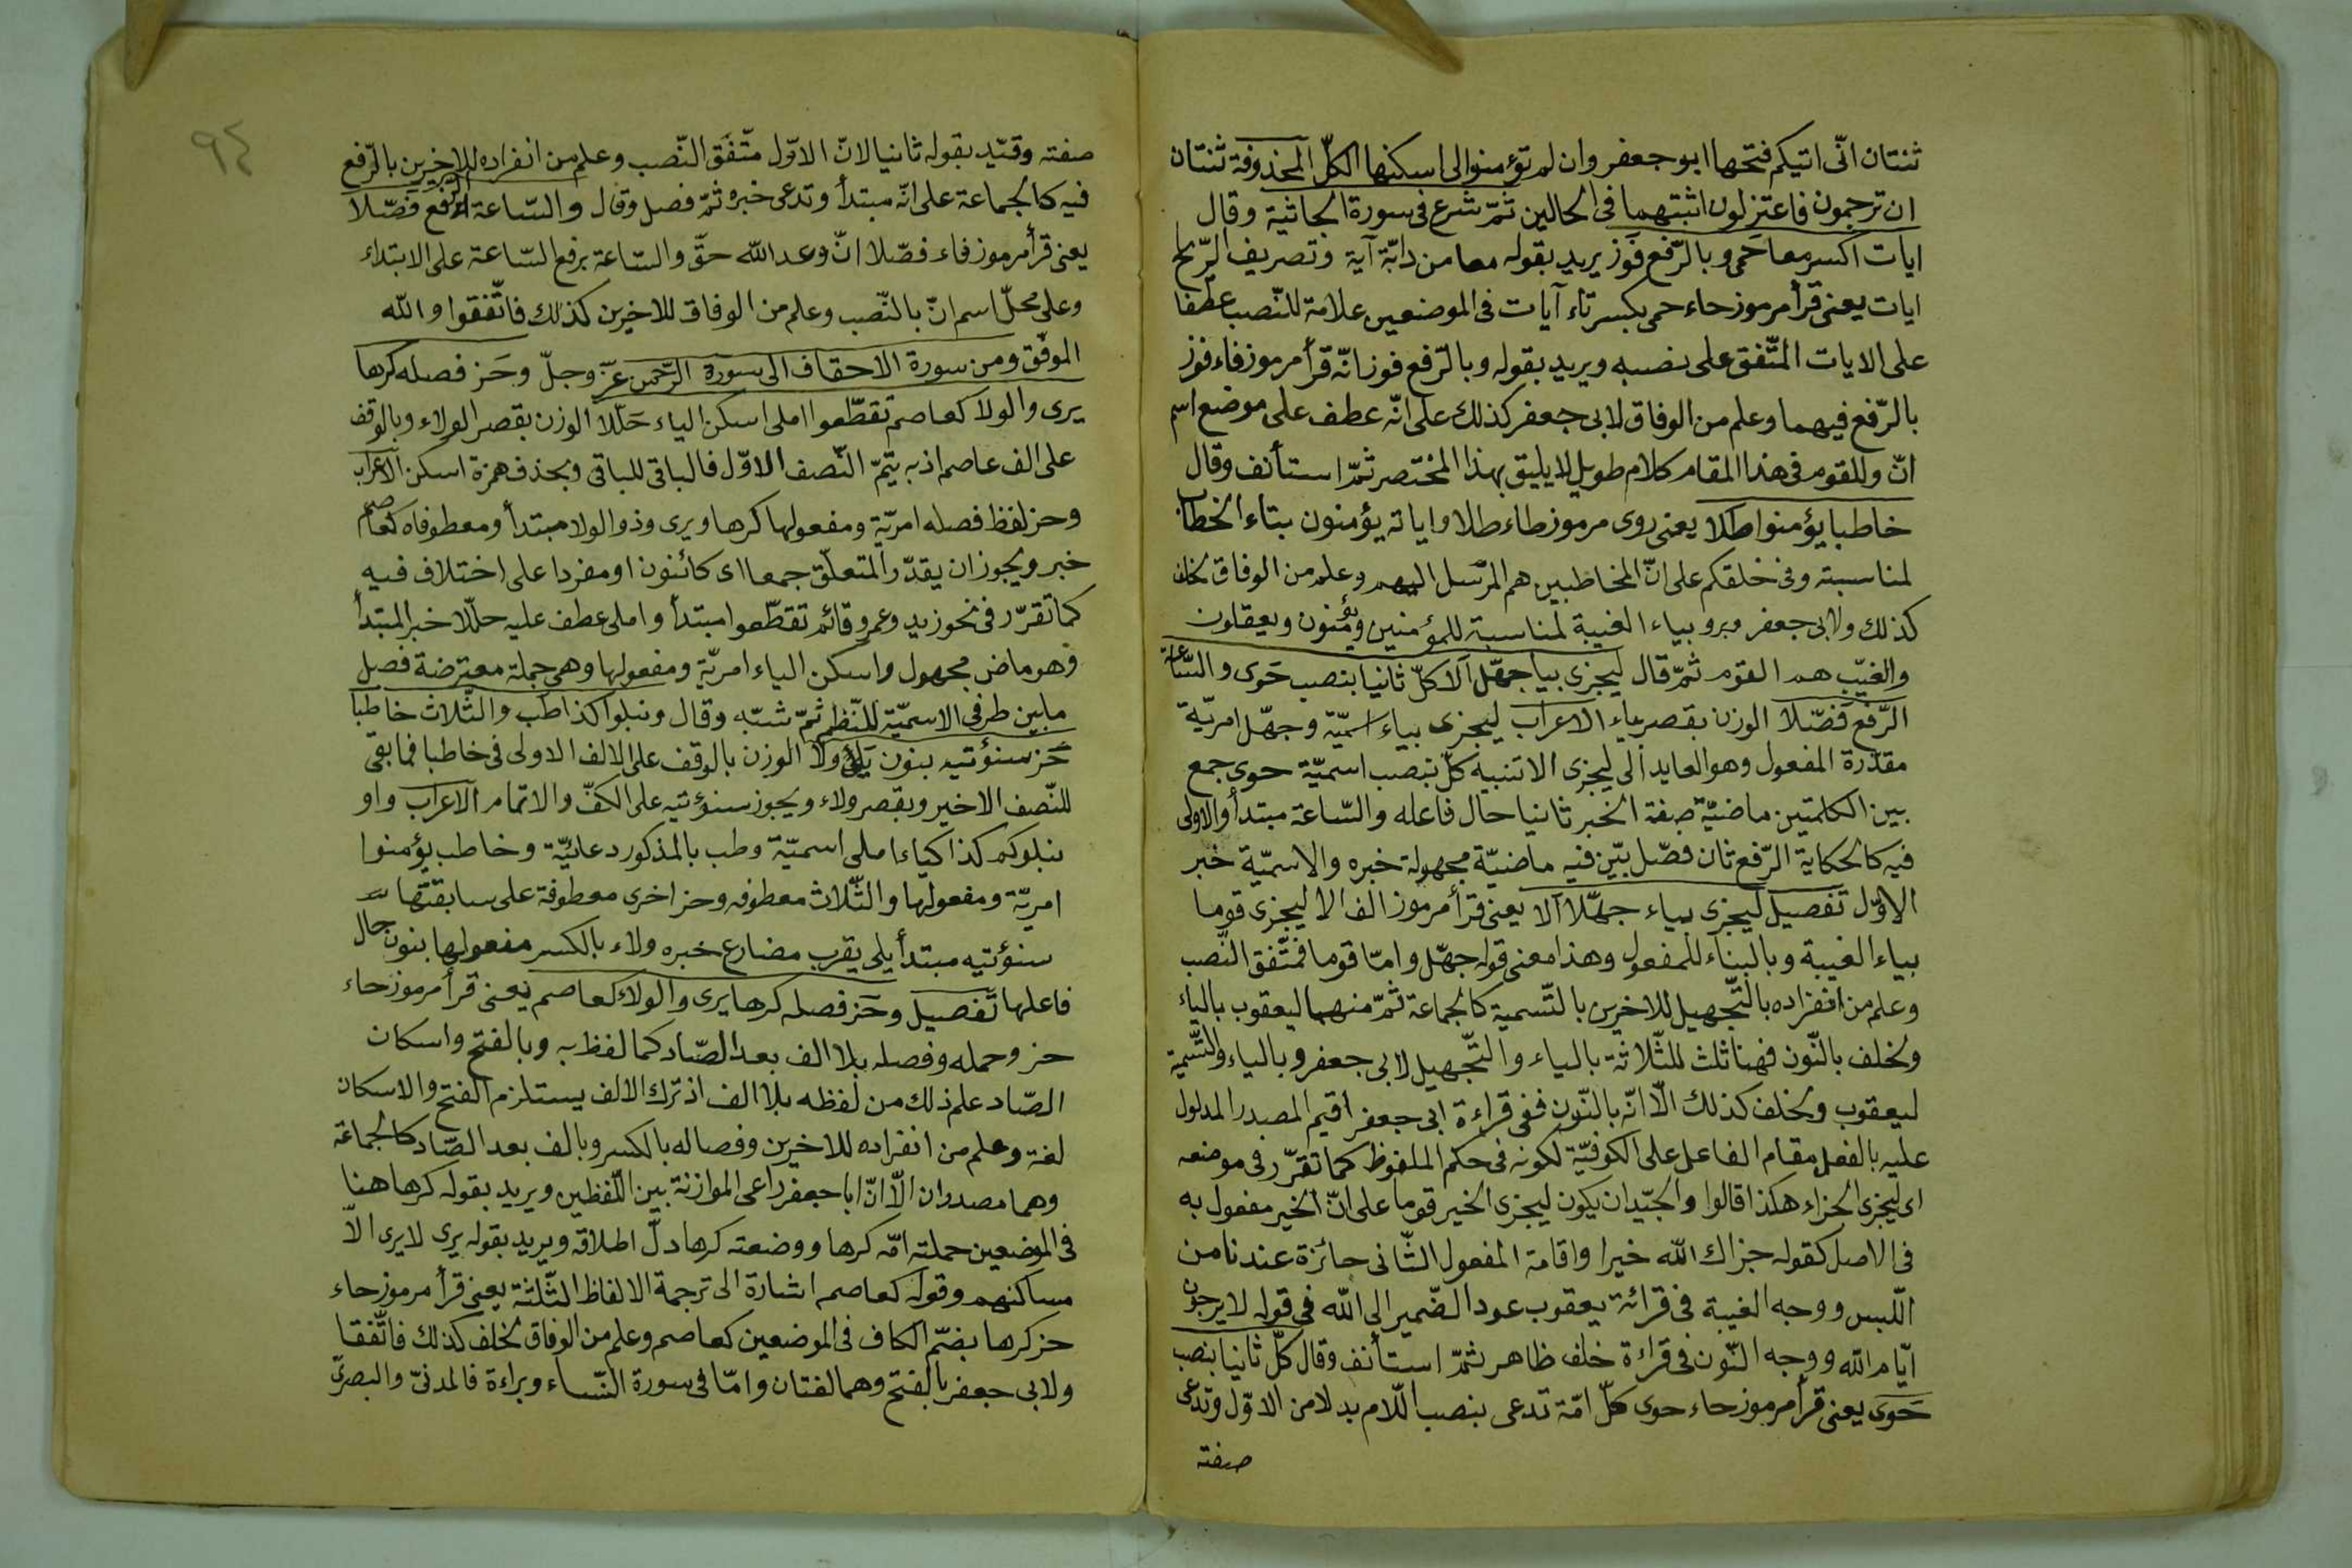 ثنتان انّى اتيكم فتحها ابو جعفر وان لم تؤمنوا لى اسكنها الكلّ المحذوفة ثنتان
ان ترجمون فاعتزلون اثبتهما فى الحالين ثمّ شرع فى سورة الجاثية وقال
ايات اكسر معا حمى وبالرّفع فوز يريد بقوله معا من دابّة آية وتصريف الرّياح
ايات يعنى قرأ مرموز حاء حمى بكسر تاء آيات فى الموضعين علامة للنّصب عطفا
على الايات المتّفق على نصبه ويريد بقوله وبالرّفع فوز انّه قرأ مرموز فاء فوز
بالرّفع فيهما وعلم من الوفاق لابى جعفر كذلك على انّه عطف على موضع اسم
انّ وللقوم فى هذا المقام كلام طويل لا يليق بهذا المختصر ثمّ استأنف وقال
خاطبا يؤمنوا طلا يعنى روى مرموز طاء طلا واياته يؤمنون بتاء الخطاب
لمناسبته وفى خلقكم على انّ المخاطبين هم المرسّل اليهم وعلم من الوفاق لخلف
كذلك ولابى جعفر وبروبياء الغيبة لمناسبة للمؤمنين ويؤمنون ويعقلون
والغيّب هم القوم ثمّ قال ليجزى بيا جهّل الا كلّ ثانيا بنصب حوى والسّاعة
الرّفع فصّلا الوزن بقصر ياء الاعراب ليجزى بياء اسميّة وجهّل امريّة
مقدّرة المفعول وهو العايد الى ليجزى الا تنبيه كلّ بنصب اسميّة حوى جمع
بين الكلمتين ماضيّة صفة الخبر ثانيا حال فاعله والسّاعة مبتدأ والاولى
فيه كالحكاية الرّفع ثان فصّل بيّن فيه ماضيّة مجهولة خبره والاسميّة خبر
الاوّل تفصيل ليجزى بياء جهّلا الا يعنى قرأ مرموز الف الا ليجزى قوما
بياء الغيبة وبالبناء للمفعول وهذا معنى قوله جهّل وامّا قوما فمتّفق النّصب
وعلم من انفراده بالتّجهيل للاخرين بالتّسمية كالجماعة ثمّ منهما ليعقوب بالياء
ولخلف بالنّون فهنا ثلث للثّلاثة بالياء والتّجهيل لابى جعفر وبالياء والتّسمية
ليعقوب ولخلف كذلك الّا انّه بالنّون ففى قراءة ابى جعفر اقيم المصدر المدلول
عليه بالفعل مقام الفاعل على الكوفيّة لكونه فى حكم الملفوظ كما تقرّر فى موضعه
اى ليجزى الجزاء هكذا قالوا والجيّد ان يكون ليجزى الخير قوما على انّ الخير مفعول به
فى الاصل كقوله جزاك الله خيرا واقامة المفعول الثّانى جائزة عند نا من
اللّبس ووجه الغيبة فى قرائة يعقوب عود الضّمير الى الله فى قوله لا يرجون
ايّام الله ووجه النّون فى قراءة خلف ظاهر ثمّ استأنف وقال كلّ ثانيا بنصب
حوى يعنى قرأ مرموز حاء حوى كلّ امّة تدعى بنصب اللّام بدلا من الاوّل وتدعى
صفته
٩٤
صفته وقيّد بقوله ثانيا لانّ الاوّل متّفق النّصب وعلم من انفراده للاخرين بالرّفع
فيه كالجماعة على انّه مبتدأ وتدعى خبره ثمّ فصل وقال والسّاعة الرّفع فصّلا
يعنى قرأ مرموز فاء فصّلا انّ وعد الله حقّ والسّاعة برفع السّاعة على الابتداء
وعلى محلّ اسم انّ بالنّصب وعلم من الوفاق للاخرين كذلك فاتّفقوا والله
الموفّق ومن سورة الاحقاف الى سورة الرّحمن عزّ وجلّ وحز فصله كرها
يرى والولا كعاصم تقطّعوا املى اسكن الياء حلّلا الوزن بقصر الولاء وبالوقف
على الف عاصم اذ به يتمّ النّصف الاوّل فالباقى للباقى وبحذف همزة اسكن الاعراب
وحز لفظ فصله امريّة ومفعولها كرها ويرى وذو الولا مبتدأ ومعطوفاه كعاصم
خبر ويجوز ان يقدّر المتعلّق جمعا اى كائنون او مفردا على اختلاف فيه
كما تقرّر فى نحو زيد وعمرو قائم تقطّعوا مبتدأ واملى عطف عليه حلّلا خبر المبتدأ
وهو ماض مجهول واسكن الياء امريّة ومفعولها وهى جملة معترضة فصل
مابين طرفى الاسميّة للنّظم ثمّ شبّه وقال ونبلوا كذا طب والثّلاث خاطبا
حز سنؤتيه بنون يلى ولا الوزن بالوقف على الالف الاولى فى خاطبا فما بقى
للنّصف الاخير وبقصر ولاء ويجوز سنؤتيه على الكفّ والاتمام الاعراب واو
نبلوكم كذا كياء املى اسميّة وطب بالمذكور دعائيّة وخاطب يؤمنوا
امريّة ومفعولها والثّلاث معطوفه وحز اخرى معطوفة على سابقتها
سنؤتيه مبتدأ يلى يقرب مضارع خبره ولاء بالكسر مفعولها بنون حال
فاعلها تفصيل وحز فصله كرها يرى والولا كعاصم يعنى قرأ مرموز حاء
حز وحمله وفصله بلا الف بعد الصّاد كما لفظ به وبالفتح واسكان
الصّاد علم ذلك من لفظه بلا الف اذ ترك الالف يستلزم الفتح والاسكان
لغة وعلم من انفراده للاخرين وفصاله بالكسر وبالف بعد الصّاد كالجماعة
وهما مصدران الّا انّ ابا جعفر راعى الموازنة بين اللّفظين ويريد بقوله كرها هنا
فى الموضعين حملته امّه كرها ووضعته كرها دلّ اطلاقه ويريد بقوله يرى لا يرى الّا
مساكنهم وقوله كعاصم اشارة الى ترجمة الالفاظ الثّلثة يعنى قرأ مرموز حاء
حز كرها بضمّ الكاف فى الموضعين كعاصم وعلم من الوفاق لخلف كذلك فاتّفقا
ولابى جعفر بالفتح وهما لغتان وامّا فى سورة النّساء وبراءة فالمدنىّ والبصرىّ